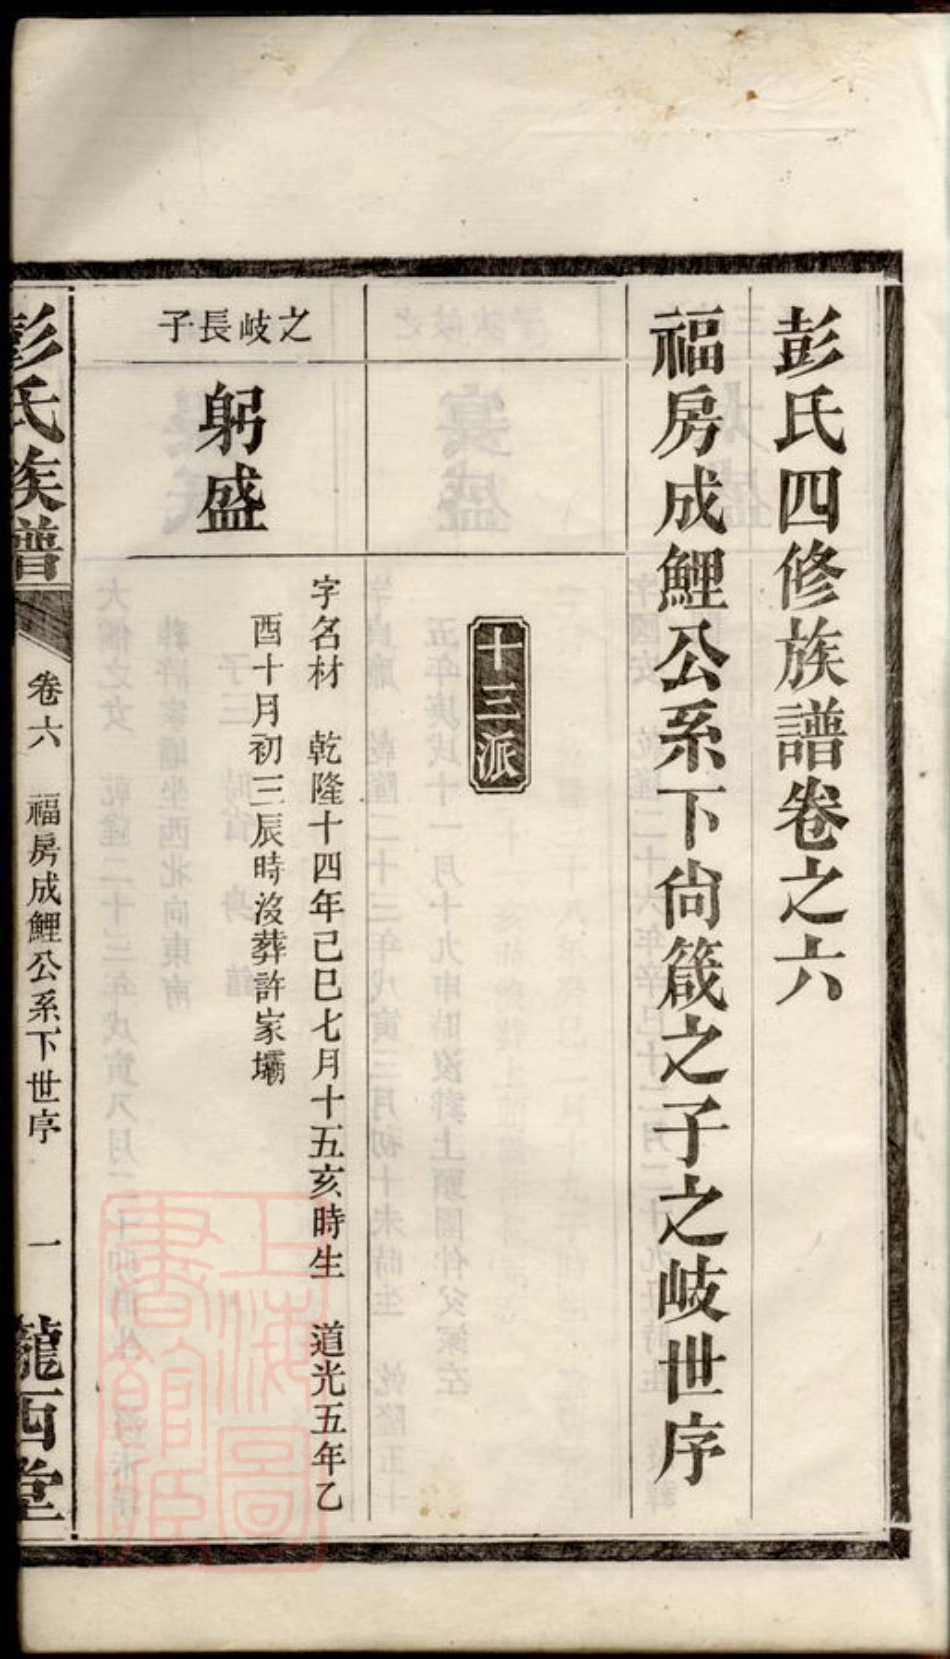 彭氏四修族譜卷之六
福房成鯉公系下尙箴之子之岐世序
十三派
之岐長子
躬盛
字名材　乾隆十四年己巳七月十五亥時生　道光五年乙
酉十月初三辰時沒葬許家壩
彭氏族譜
卷六　福房成鯉公系下世序　一
隴西堂
上海圖
書館藏